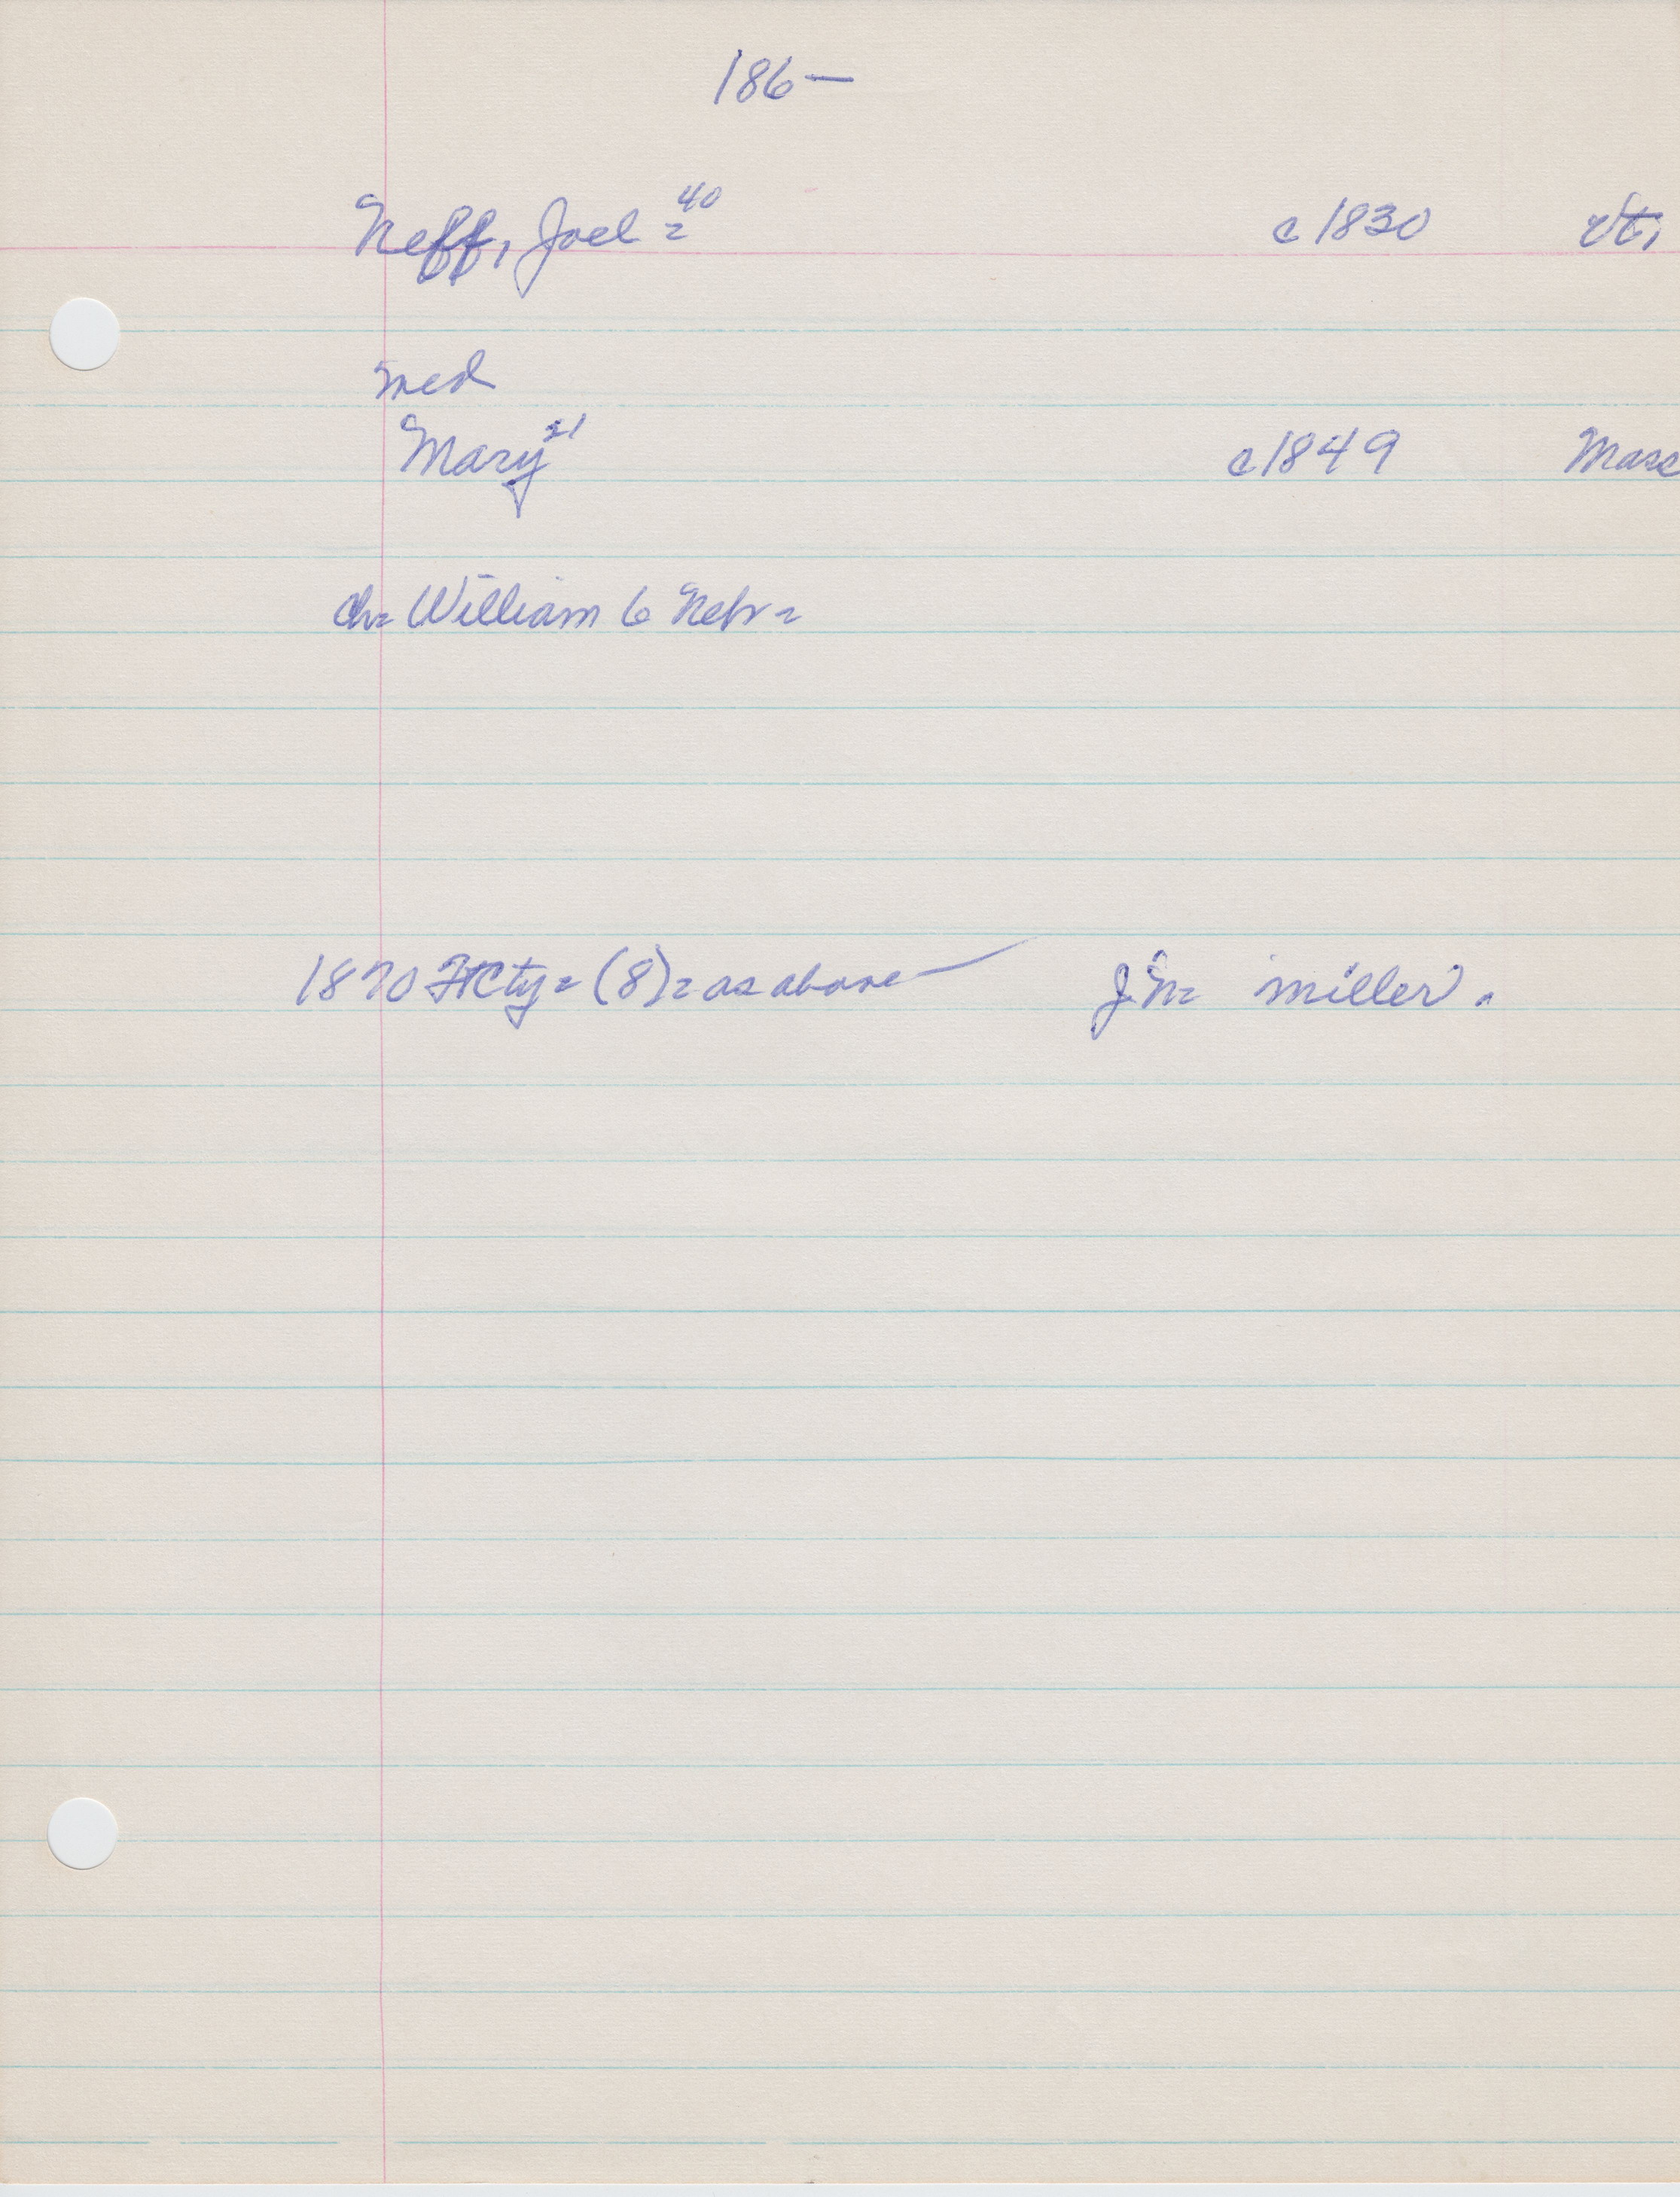 186—
Neff, Joel = 40 c1830 Vt.
med
Mary 21 c1849 Mass
ch= William 6 Nebr =
1870 Ft Cty = (8) = as above — J.N= miller.